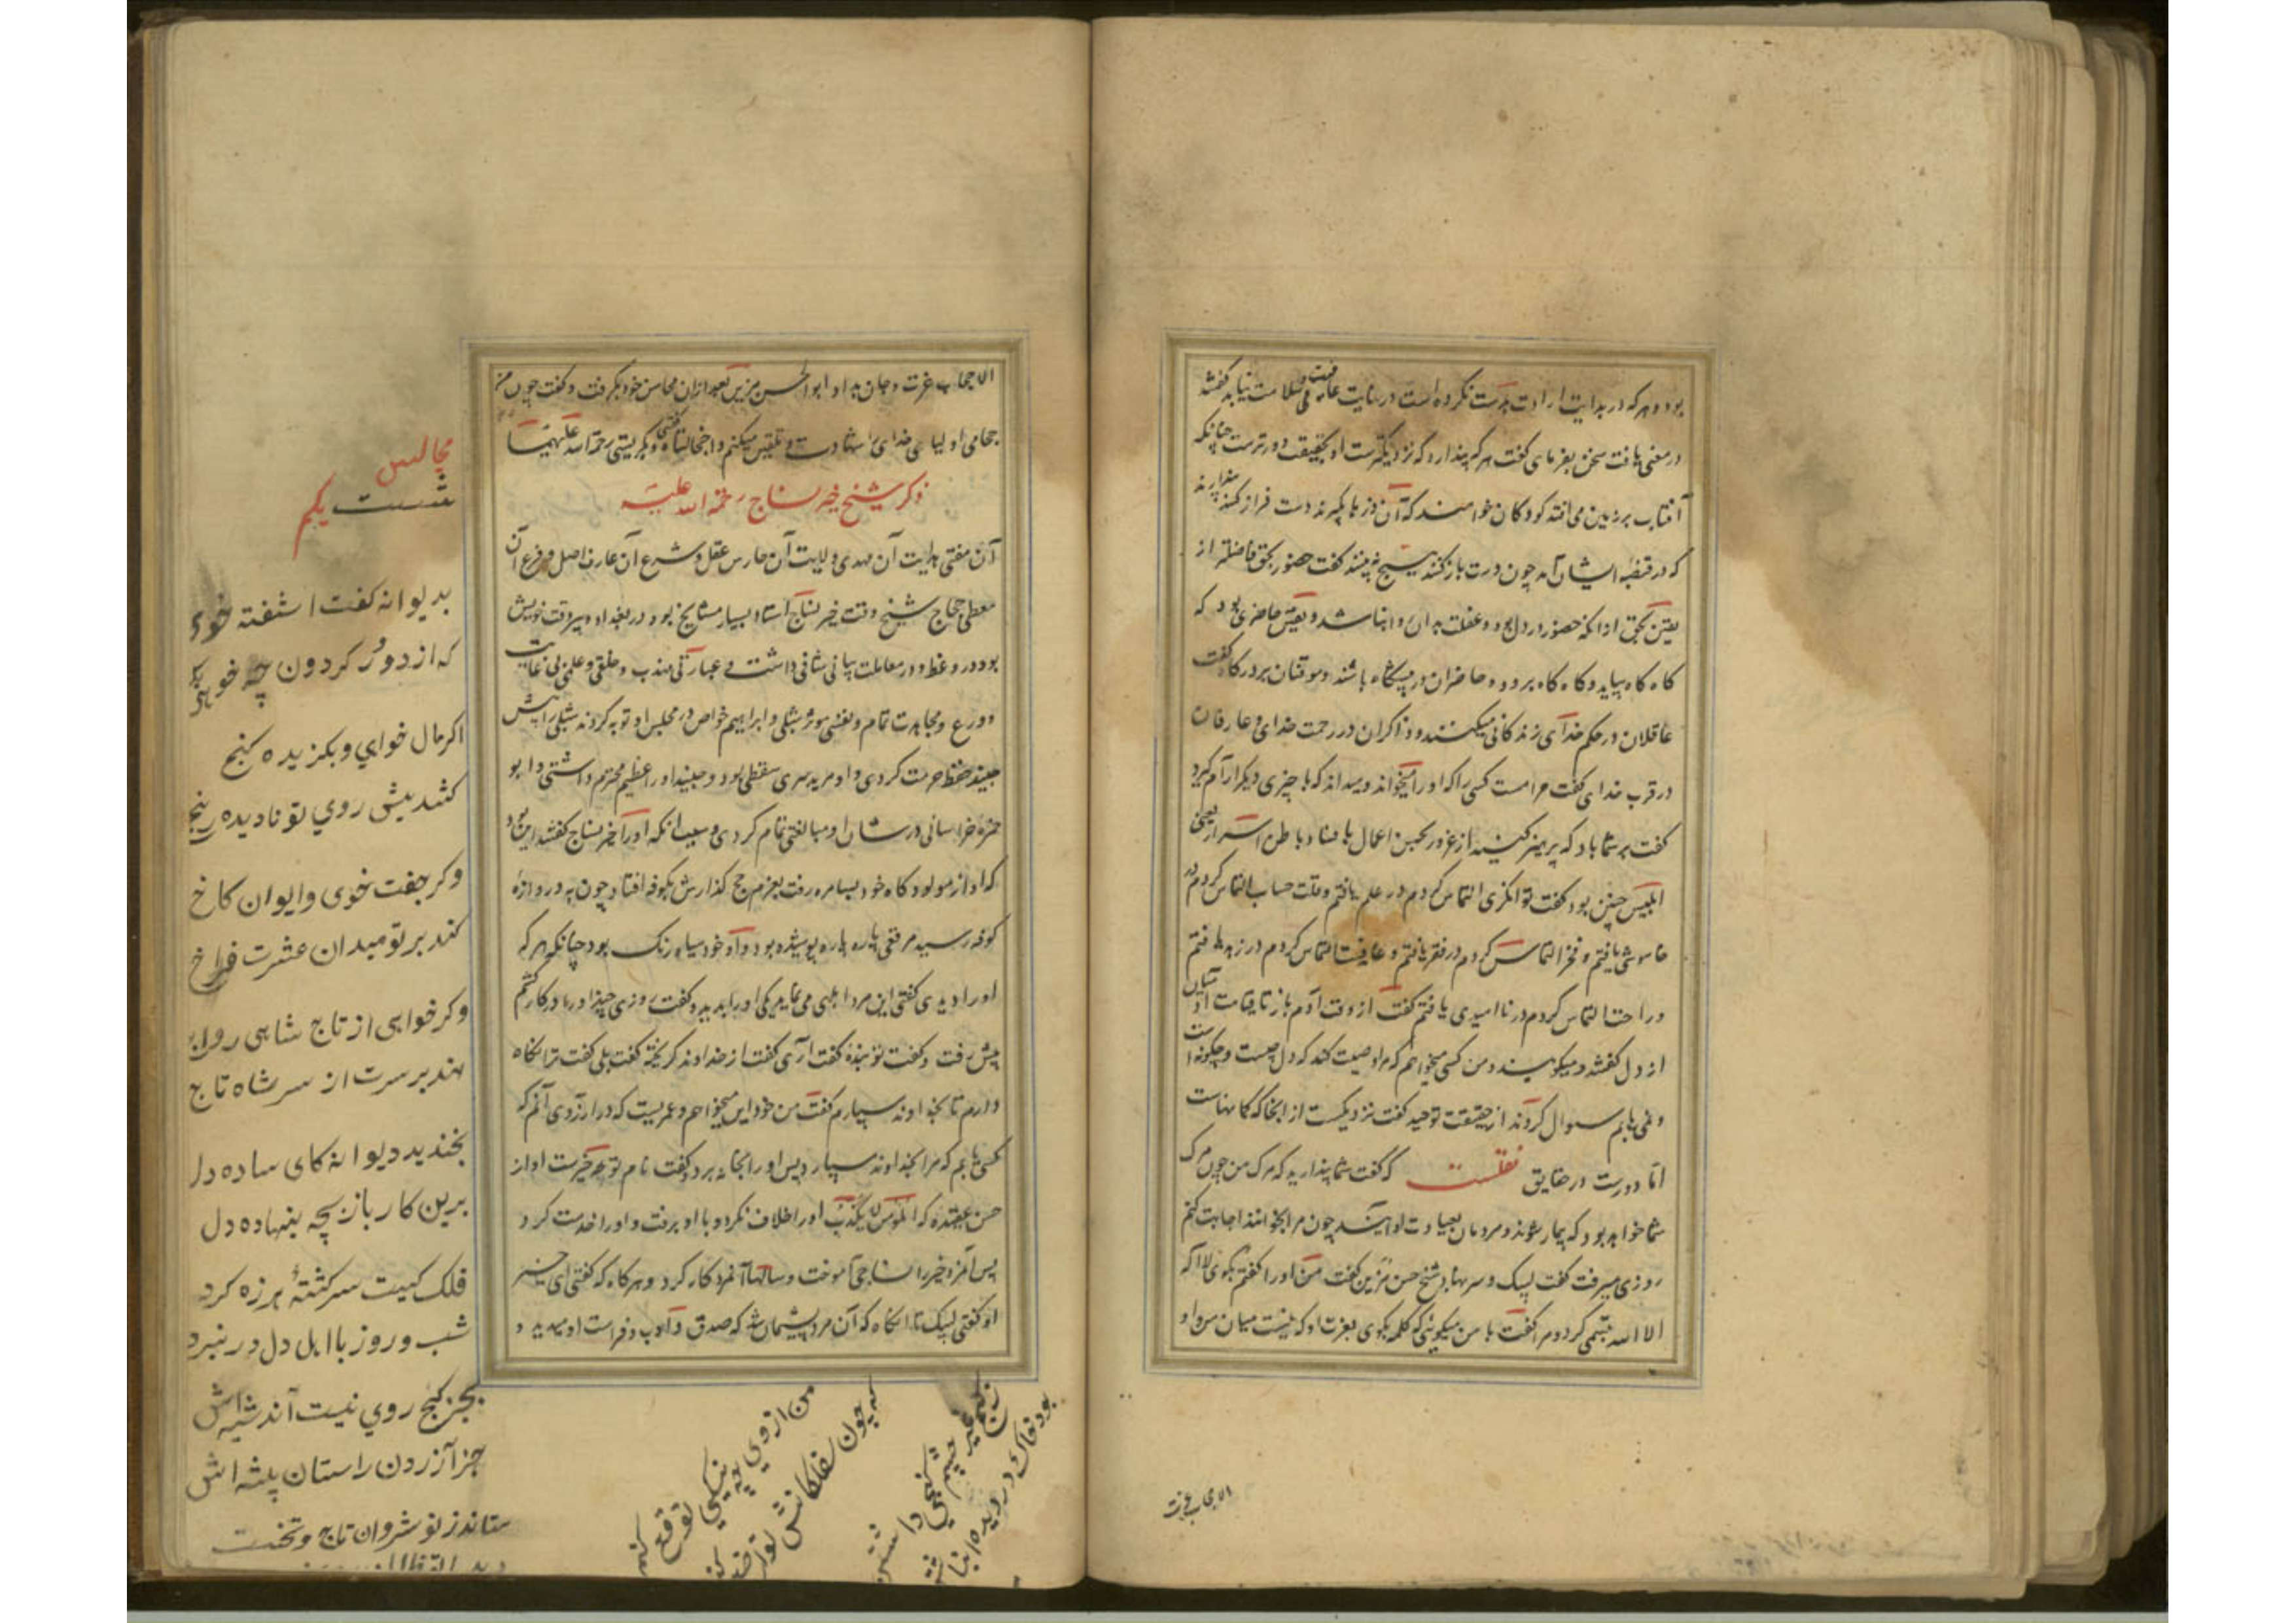 بود و هر که در بدایت ارادت درست نکرده است در نهایت عافیت و سلامت نیابد گفتند
در معنی یافت سخن بفرمای گفت هر که پندارد که نزدیکترست او بحقیقت دورترست چنانکه
آفتاب بر زمین می افتد کودکان خواهند که آن ذرها بگیرند دست فراز کنند پندارند
که در قبضهٔ ایشان آمد چون دست باز کنند هیچ نه بینند گفت حضور بحق فاضلتر از
یقین بحق از آنکه حضور در دل بود و غفلت بدان روا نباشد و یقین خاطری بود که
گاه گاه بیاید و گاه گاه برود و حاضران در پیشگاه باشند و موقنان بر درگاه گفت
غافلان در حکم خدای زندگانی میکنند و ذاکران در رحمت خدای و عارفان
در قرب خدای گفت حرامست کسی را که او را میخواند و میداند که با چیزی دیگر آرام گیرد
گفت بر شما باد که پرهیز کنید از غرور بحسن اعمال با فساد باطن اسرار یعنی
ابلیس چنین بود گفت توانگری التماس کردم در علم یافتم و قلت حساب التماس کردم در
خاموشی یافتم و فخر التماس کردم در فقر یافتم و عافیت التماس کردم در زهد یافتم
و راحت التماس کردم در ناامیدی یافتم گفت از وقت آدم باز تا قیامت آدمیان
از دل گفتند و میگویند و من کسی میخواهم که مرا وصیت کند که دل چیست و چگونه است
و نمی یابم سوال کردند از حقیقت توحید گفت نزدیکست از آنجا که گمانهاست
اما دورست در حقایق نقلست که گفت شما پندارید که مرگ من چون مرگ
شما خواهد بود که بیمار شوند و مردمان بعیادت او آیند چون مرا بخوانند اجابت کنم
روزی میرفت گفت لبیک و سر بنهاد شیخ حسن مزین گفت من او را گفتم بگوی لا اله
الا الله تبسمی کرد و مرا گفت با من میگوئی که کلمه بگوی بعزت او که نیست میان من و او
الا حجاب عزت
الا حجاب عزت و جان بداد ابوالحسن مزین بعد از آن محاسن خود بگرفت و گفت چون من
حجامی اولیای خدای را شهادت تلقین میکنم واخجالتاه گفتی و بگریستی رحمة الله علیهما
ذکر شیخ خیر نساج رحمة الله علیه
آن مفتی هدایت آن مهدی ولایت آن حارس عقل و شرع آن عارف اصل و فرع آن
معطی حجاج شیخ وقت خیر نساج استاد بسیار مشایخ بود در بغداد و پیر وقت خویش
بود و در وعظ و در معاملت بیانی شافی داشت و عبارتی مهذب و خلقی و علمی بی غایت
و ورع و مجاهدت تمام و نفسی موثر شبلی و ابراهیم خواص در مجلس او توبه کردند شبلی را پیش
جنید حفظ حرمت کردی و او مرید سری سقطی بود و جنید او را عظیم محترم داشتی و ابو
حمزه خراسانی در شان او مبالغتی تمام کردی و سبب آنکه او را خیر نساج گفتند این بود
که او از مولودگاه خود بسامره رفت بعزم حج گذارش بکوفه افتاد چون به دروازهٔ
کوفه رسید مرقعی پاره پاره پوشیده بود و او خود سیاه رنگ بود چنانکه هر که
او را دیدی گفتی این مرد ابلهی می نماید یکی او را بدید و گفت روزی چند او را در کار کشم
پیش رفت و گفت تو بندهٔ گفت آری گفت از خداوند گریختهٔ گفت بلی گفت ترا نگاه
دارم تا بخداوند سپارم گفت من خود این میخواهم و عمریست که در آرزوی آنم که
کسی یابم که مرا بخداوند سپارد پس او را بخانه برد و گفت نام تو خیرست او از
حسن عقیدهٔ که المومن لا یکذب او را خلاف نکرد و با او برفت و او را خدمت کرد
پس آن مرد خیر را نساجی آموخت و سالها آنمرد کار کرد و هر گاه که گفتی ای خیر
او گفتی لبیک تا آنگاه که آن مرد پشیمان شد که صدق و ادب و فراست او میدید و
مجالس
شست یکم
بدیوانه گفت اشفته خوی
که از دور گردون چه خواهی بگو
اگر مال خواهی و بگزیده گنج
کشد پیش روی تو نادیده رنج
وگر جفت خوی و ایوان کاخ
کند بر تو میدان عشرت فراخ
وگر خواهی از تاج شاهی رواج
نهد بر سرت از سر شاه تاج
بخندید دیوانه کای ساده دل
برین کار بازیچه بنهاده دل
فلک کیست سرکشتهٔ هرزه کرد
شب و روز با اهل دل در نبرد
بجز کج روی نیست اندیشه اش
جز آزردن راستان پیشه اش
ستاند ز نوشروان تاج و تخت
من از وی چه نیکی توقع کنم
که چون سفلکانش تواضع کنم